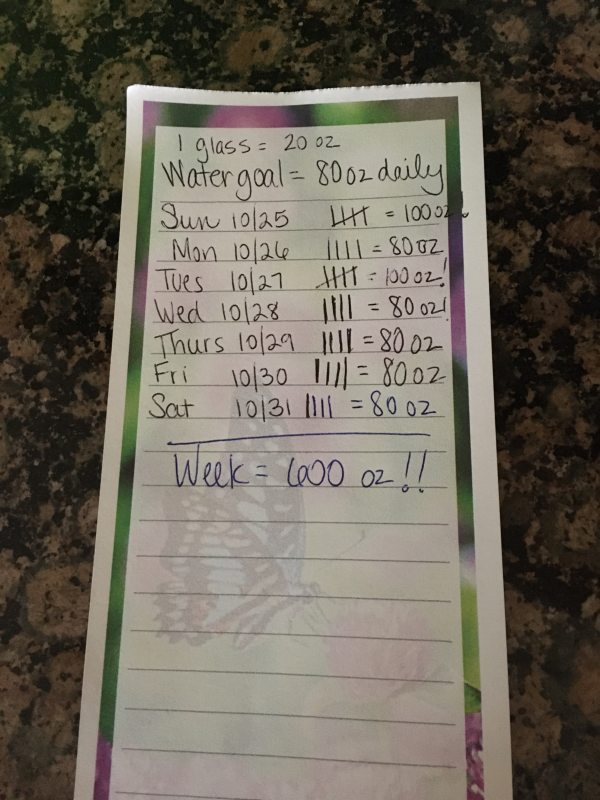 1 glass = 20 oz
Water goal = 80 oz daily
Sun 10/25 𝍸 = 100 oz!
Mon 10/26 |||| = 80 oz
Tues 10/27 𝍸 = 100 oz!
Wed 10/28 |||| = 80 oz!
Thurs 10/29 |||| = 80 oz
Fri 10/30 |||| = 80 oz
Sat 10/31 |||| = 80 oz
Week = 600 oz!!